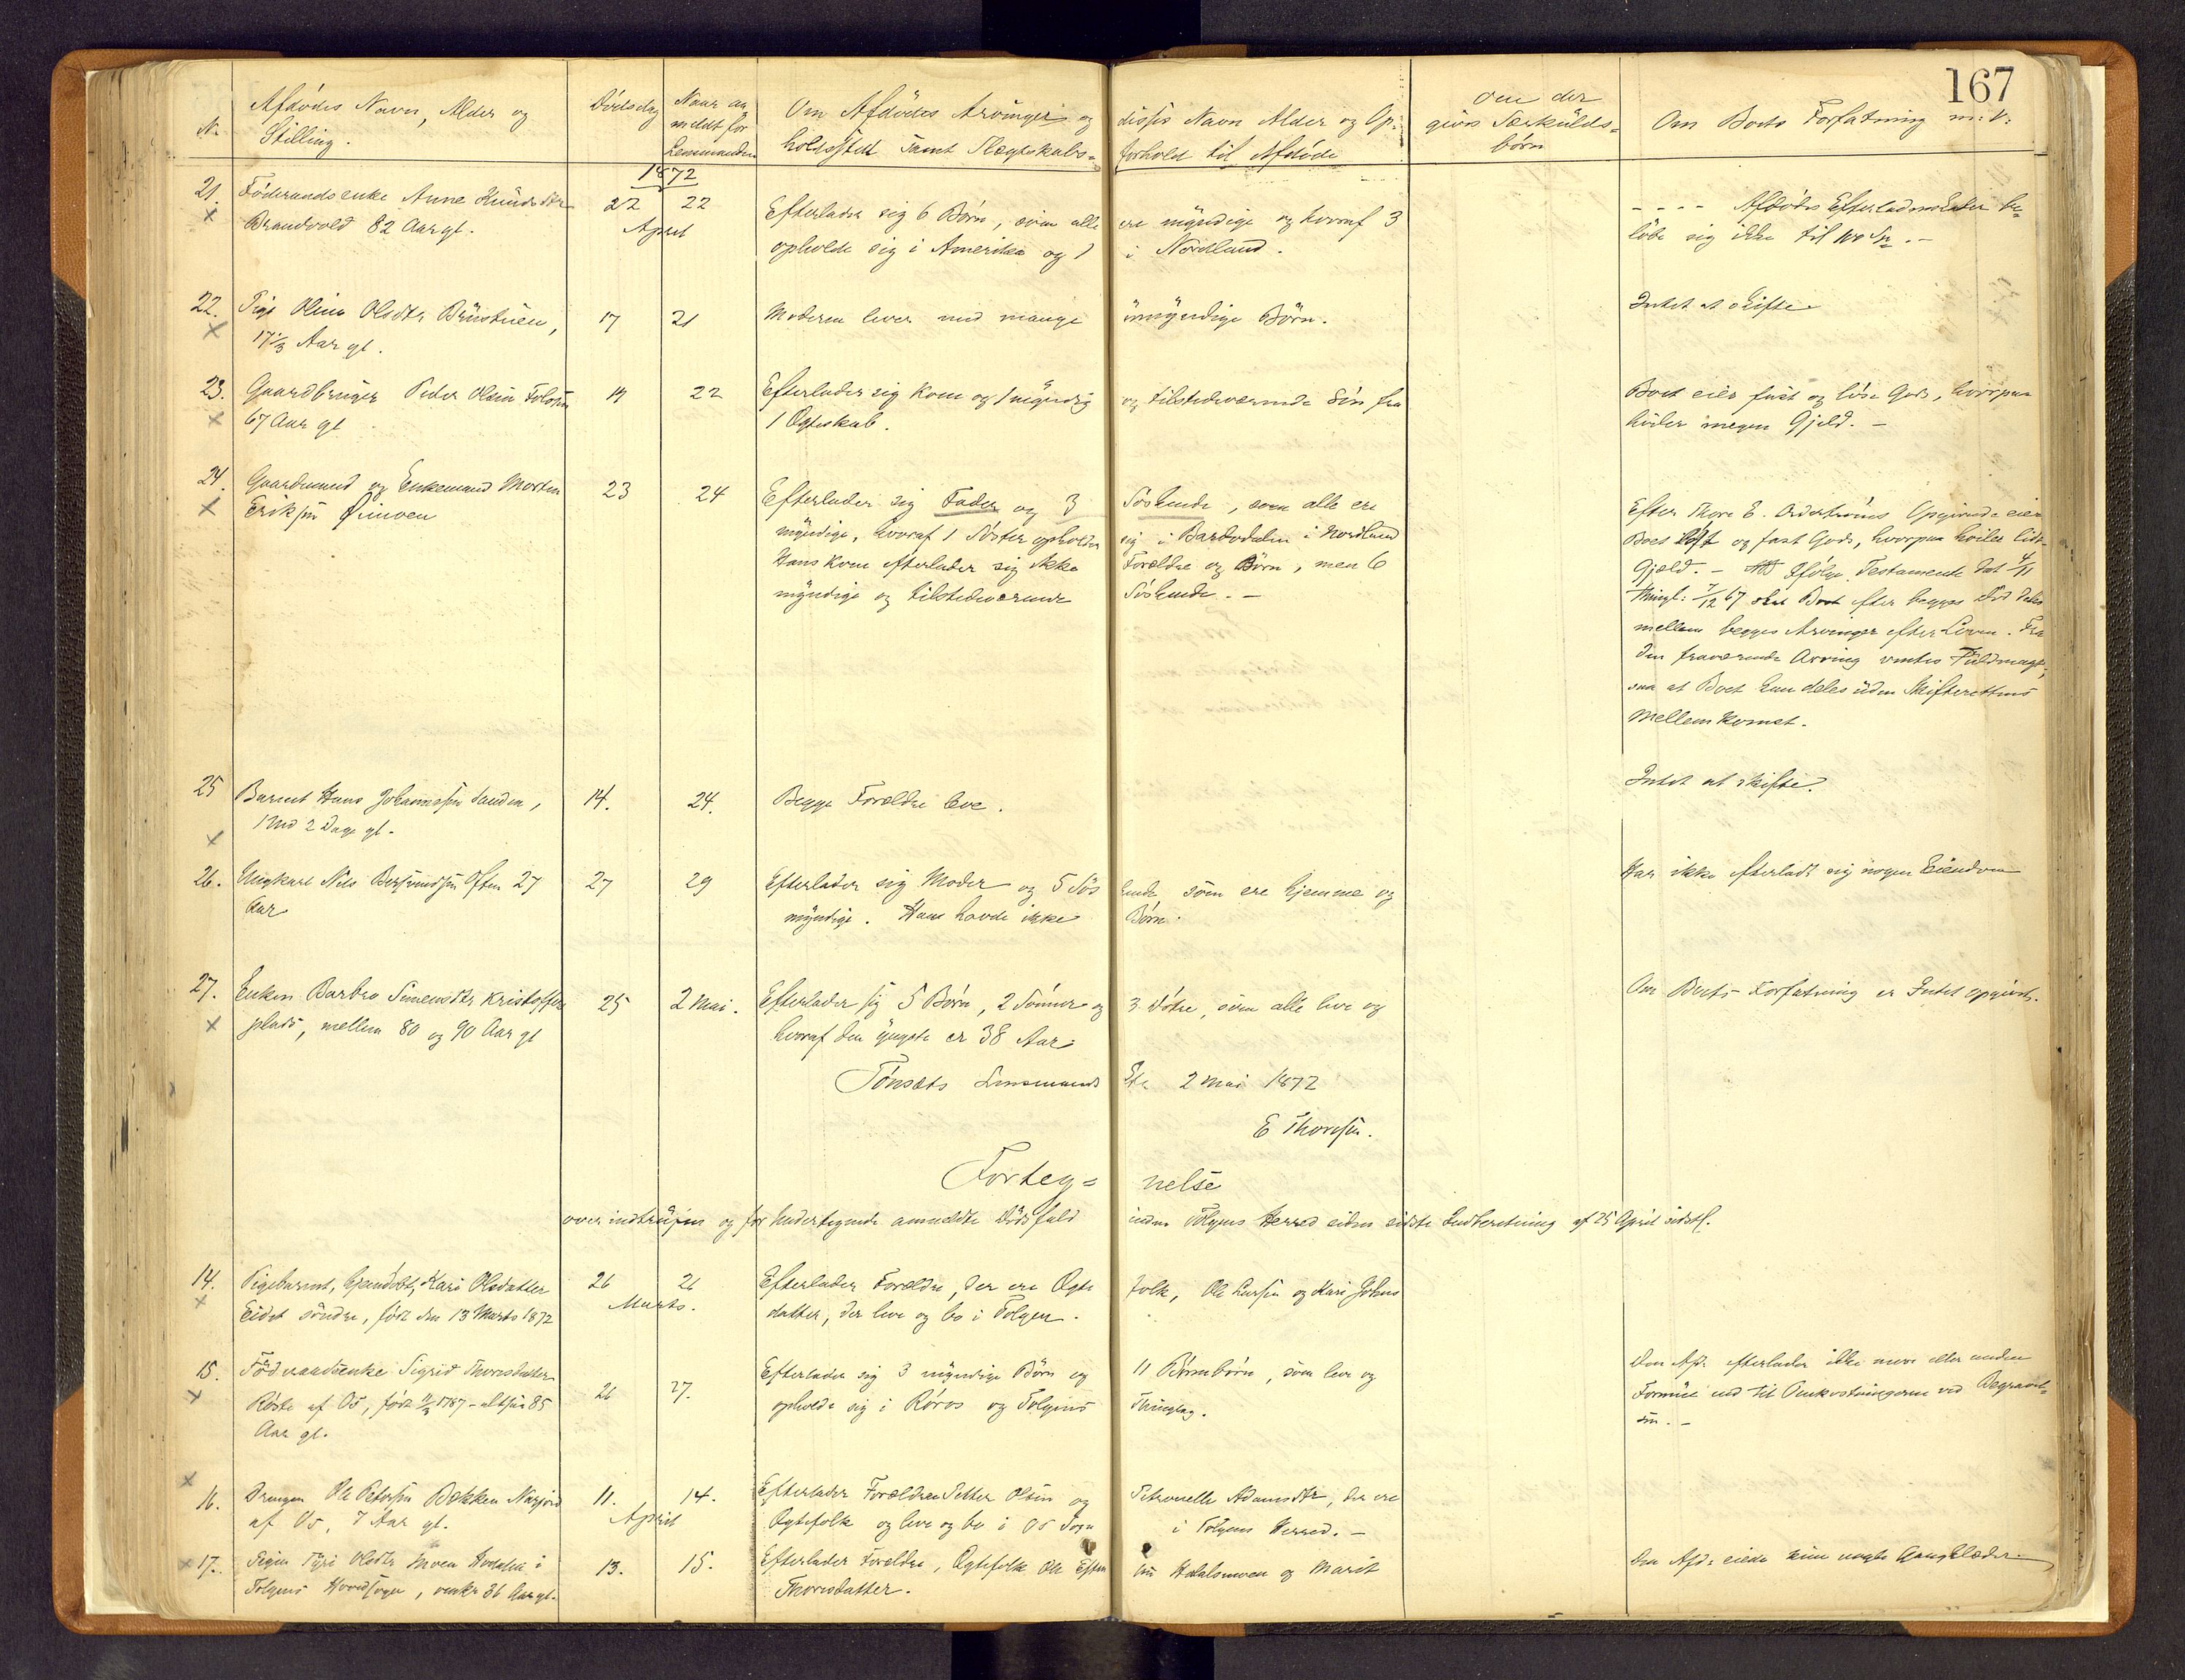 167
N.
Afdødes Navn, Alder og
Stilling.
Dødsdag
Naar an
meldt for
Lensmanden
Om Afdødes Arvinger og
disses Navn Alder og Op-
holdssted samt Slægtskabs-
forhold til Afdøde
Om der
gives Særkulds-
børn
Om Boets Forfatning m: V:
1872
21. Føderaadsenke Anne Knudsdtr
Brandvold 82 Aar gl.
22 22
April
Efterlader sig 6 Børn, som alle ere myndige og hvoraf 3
opholde sig i Amerika og 1 i Nordland.
- - - - Afdødes Efterladenskaber be-
løbe sig ikke til 100 Sp. -
22. Pige Oline Olsdtr Brustuen,
17 1/3 Aar gl.
17 21
Moderen lever med mange umyndige Børn.
Intet at skifte
23. Gaardbruger Peder Olsen
67 Aar gl
19 22
Efterlader sig Kone og 1 myndig og tilstedeværende Søn fra
1 Ægteskab.
Boet eier fast og løst Gods, hvorpaa
hviler megen Gjeld. -
24. Gaardmand og Enkemand Morten
Eriksen
23 24
Efterlader sig Fader og 3 Søskende, som alle ere
myndige, hvoraf 1 Søster opholder sig i Bardodalen i Nordland
Hans Kone efterlader sig ikke Forældre og Børn, men 6
myndige og tilstedeværende Søskende. -
Efter Thore E. Opgivende eier
Boet løst og fast Gods, hvorpaa hviler lidt
Gjeld. - Ifølge Testamente dat 4/11
Thingl: 7/12 67 skal Boet efter begges Død deles
mellem begges Arvinger efter Loven. Fra
den fraværende Arving ventes Fuldmagt,
saa at Boet kan deles uden Skifterettens
Mellemkomst.
25 Barnet Hans Johannessen Sanden,
1 Md 2 Dage gl.
14. 24.
Begge Forældre leve.
Intet at skifte.
26. Ungkarl Nils Bersvendsen 27
Aar
27 29
Efterlader sig Moder og 5 Søskende som ere hjemme og
myndige. Han havde ikke Børn.
Har ikke efterladt sig nogen Eiendom
27. Enken Barbro Simensdtr Kristoffer
plads, mellem 80 og 90 Aar gl
25 2 Mai.
Efterlader sig 5 Børn, 2 Sønner og 3 Døtre, som alle leve og
hvoraf den yngste er 38 Aar.
Om Boets Forfatning er Intet opgivet.
Tønsets Lensmands 2 Mai 1872
E Thoresen.
Forteg= nelse
over indtrufne og for Undertegnede anmeldte Dødsfald inden Tolgens Herred siden sidste Indberetning af 25 April sidstl.
14. Pigebarnet, hjemdøbt, Kari Olsdatter
Eidet søndre, født den 13 Marts 1872
26 26
Marts.
Efterlader Forældre, der ere Ægte folk, Ole Larsen og Kari Johns
datter, der leve og bo i Tolgen.
15. Føderaadsenke Sigrid Thoresdatter
Røste af Os, født 1787 - altsaa 85
Aar gl.
26 27.
Efterlader sig 3 myndige Børn og 11 Børnebørn, som leve og
opholde sig i Røros og Tolgens Thinglag.
Den Afd. efterlader ikke mere eller anden
Formue end til Omkostningerne ved Begravel-
sen. -
16. Drengen Ole Petersen Bækken Narjord
af Os, 7 Aar gl.
11. 14.
April
Efterlader Forældre Petter Olsen og Petronelle Adamsdtr, der ere
Ægtefolk og leve og bo i Os Sogn i Tolgens Herred. -
17. Pigen Olsdtr Moen Hodalen i
Tolgens Hovedsogn, 36 Aar gl.
13. 15.
Efterlader Forældre, Ægtefolk Ole Hodalsmoen og Marit
Thoresdatter.
Den Afd. eiede kun nogle Gangklæder